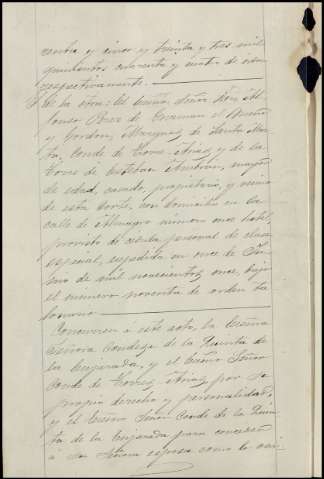 renta y cinco y treinta y tres mil
quinientos ochenta y cuatro de orden
respectivamente.
De la otra: El Excmo. Señor Don Al
fonso Perez de Guzman el Bueno
y Gordon, Marques de Santa Mar
ta, Conde de Torre-Arias y de la
Torre de Esteban Ambran, mayor
de edad, casado, propietario, y vecino
de esta Corte, con domicilio en la
calle de Almagro número once, hotel,
provisto de cédula personal de clase
especial, expedida en once de Ju
nio de mil novecientos once, bajo
el número noventa de orden ta
lonario
Concurren á este acto, la Excma
Señora Condesa de la Quinta de
la Enjarada, y el Excmo Señor
Conde de Torre Arias, por su
propio derecho y personalidad,
y el Excmo Señor Conde de la Quin
ta de la Enjarada para conceder
á su Señora esposa como lo